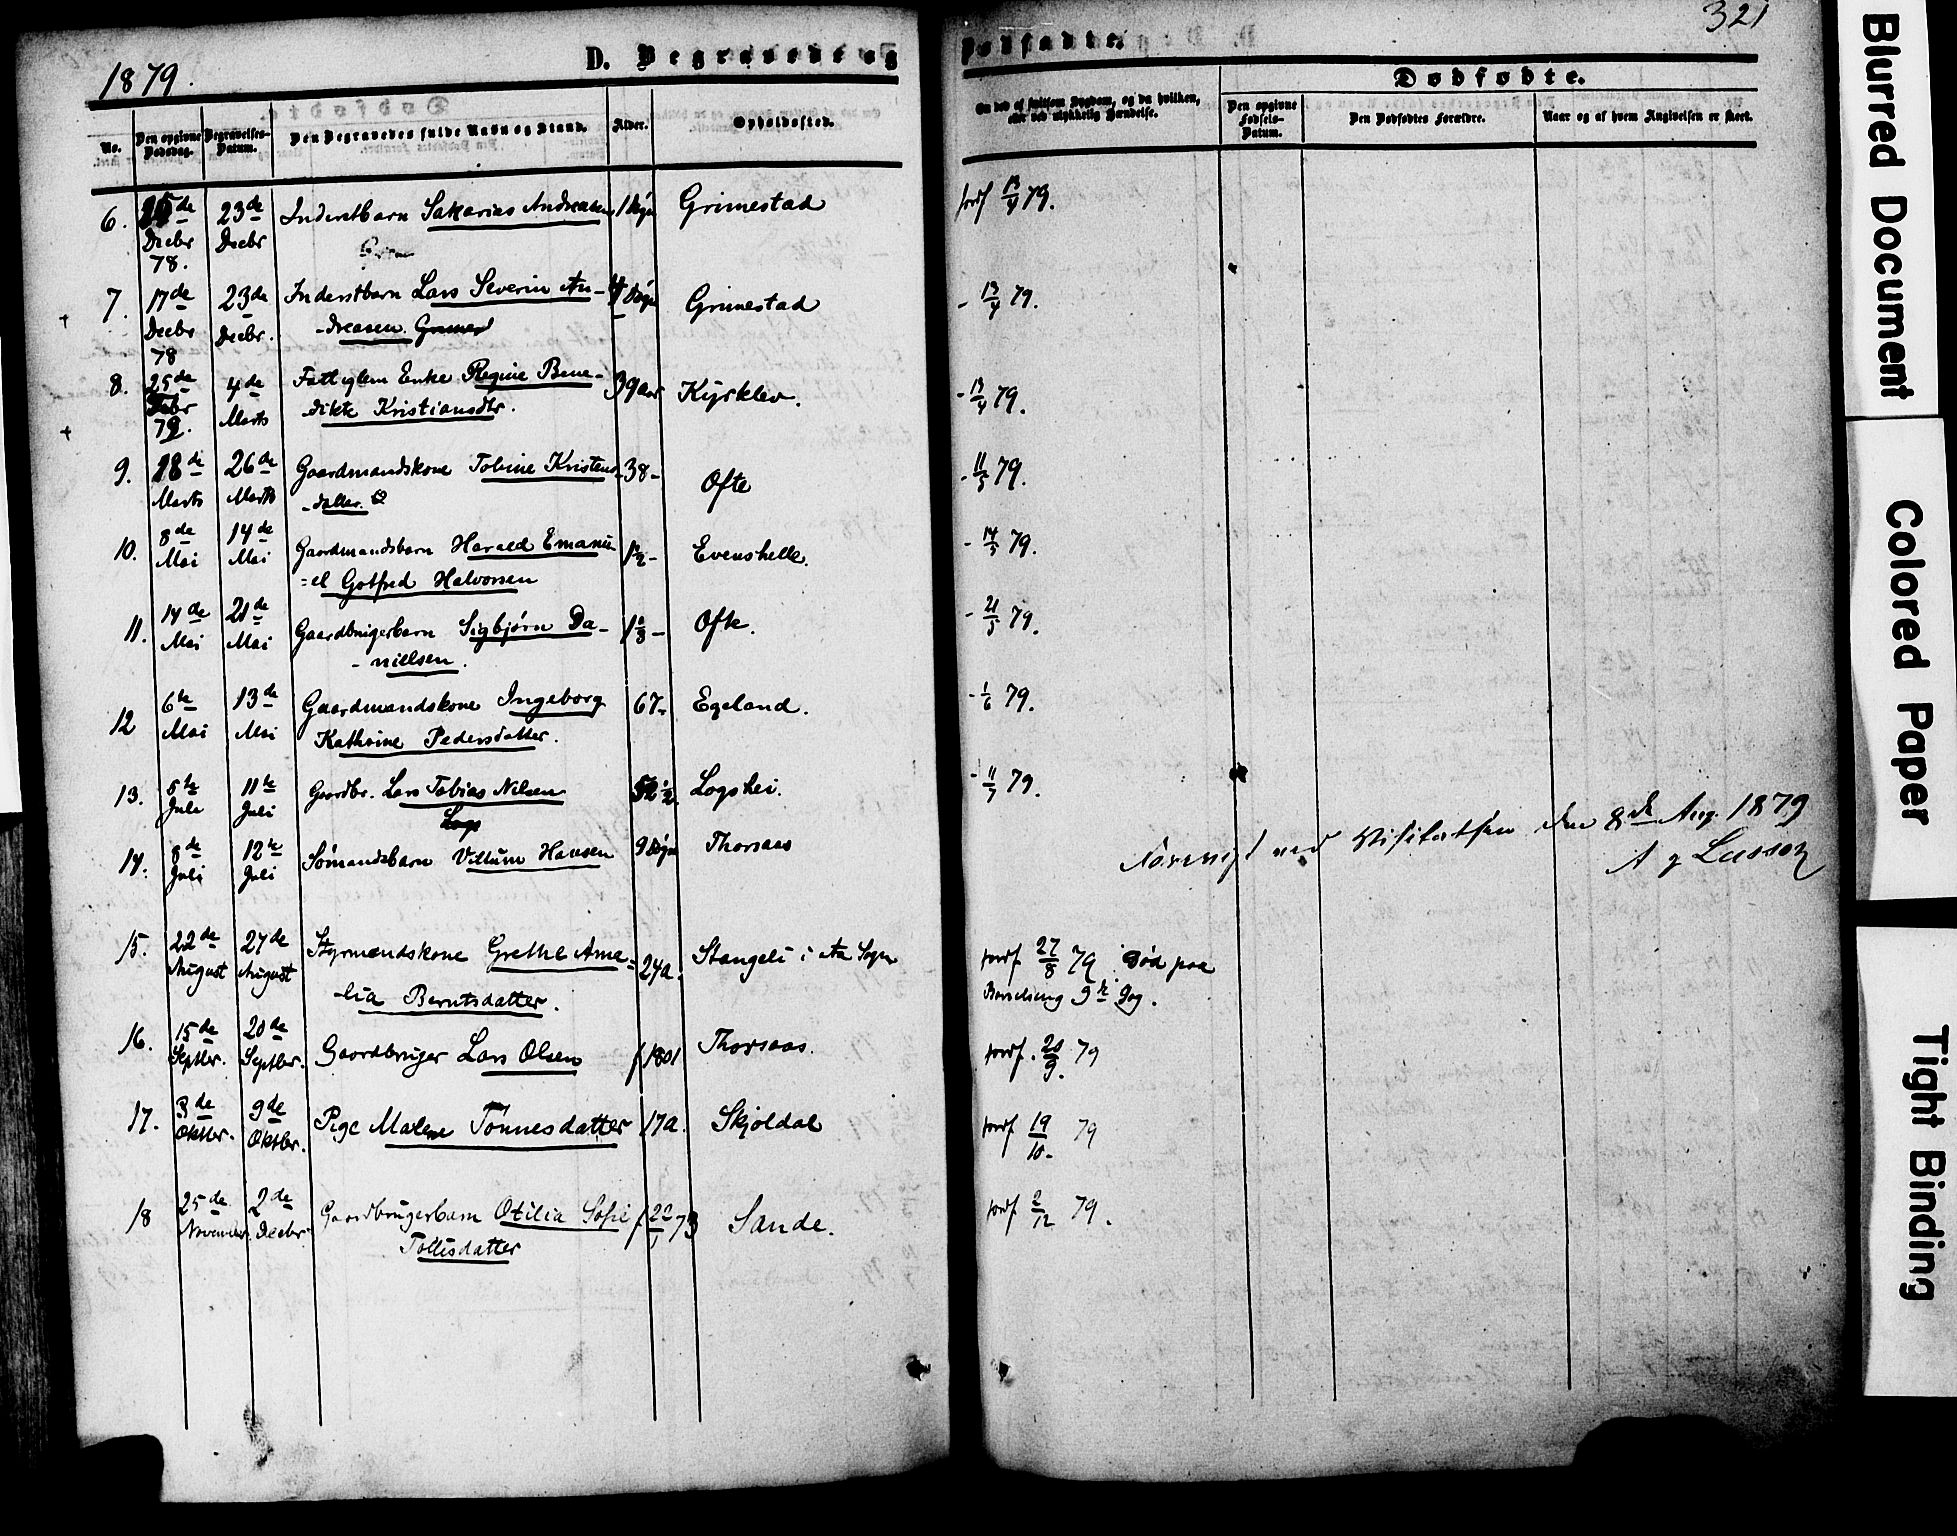 1879.
D. Begravede og
No.
Den opgivne Dødsdag.
Begravelses-Datum.
Den Begravedes fulde Navn og Stand.
Alder.
Opholdssted.
6. de Decbr 78. 23de Decbr Inderstbarn Sakarias Andreasen 1 Døgn Grimestad
7. 17de Decbr 78 23de Decbr. Inderstbarn Lars Severin An- Døgn Grimestad
-dreasen.
8. 25de Febr 79. 4de Marts Fattiglem Enke Regine Bene- 39 aar Kyrklev.
-dikte Kristiansdtr.
9. 18de Marts 26de Marts Gaardmandskone Tobine Kristens- 38- Ofte
-datter.
10. 8de Mai 14de Mai Gaardmandsbarn Harald Emanu- Evenshelle.
=el Gotfred Halvorsen
11. 14de Mai 21de Mai Gaardbrugerbarn Sigbjørn Da- 1 1/3 - Ofte.
-nielsen.
12 6te Mai 13de Mai Gaardmandskone Ingeborg 67- Egeland.
Kathrine Pedersdatter.
13. 5te Juli 11te Juli Gaardbr. Lars Tobias Nilsen 52 1/2. Logshei.
Logs
14. 8de Juli 12te Juli Sømandsbarn Villum Hansen 9 Døgn Thorsaas
15. 22de August 27de August Styrmandskone Grethe Ame- 24 a. Stangeli i Aa Sogn
-lia Berntsdatter.
16. 15de Septbr. 20de Septbr. Gaardbruger Lars Olsen f 1801 Thorsaas.
17. 3de Oktbr. 9de Oktbr. Pige Malene Tønnesdatter 17 a. Skjoldal
18 25de November 2de Decbr Gaardbrugerbarn Otilia Sofie f 22/1 73 Sande.
Tollisdatter
321
Dødfødte.
Om død af hvilken Sygdom, og da hvilken,
eller ved ulykkelig Hændelse.
Dødfødte.
Den opgivne Fødsels-Datum.
Den Dødfødtes Forældre.
Naar og af hvem Angivelsen er skeet.
jordf 13/4 79.
- 13/4 79.
- 13/4 79.
- 11/5 79.
- 14/5 79.
- 21/5 79.
- 1/6 79.
- 11/7 79.
ved Visitatsen den 8de Aug. 1879
Lasson
jordf. 27/8 79 Død paa
Barselseng 9de Dag.
jordf. 20/9. 79
jordf 19/10. 79
jordf 2/12 79.
Blurred Document
Colored Paper
Tight Binding